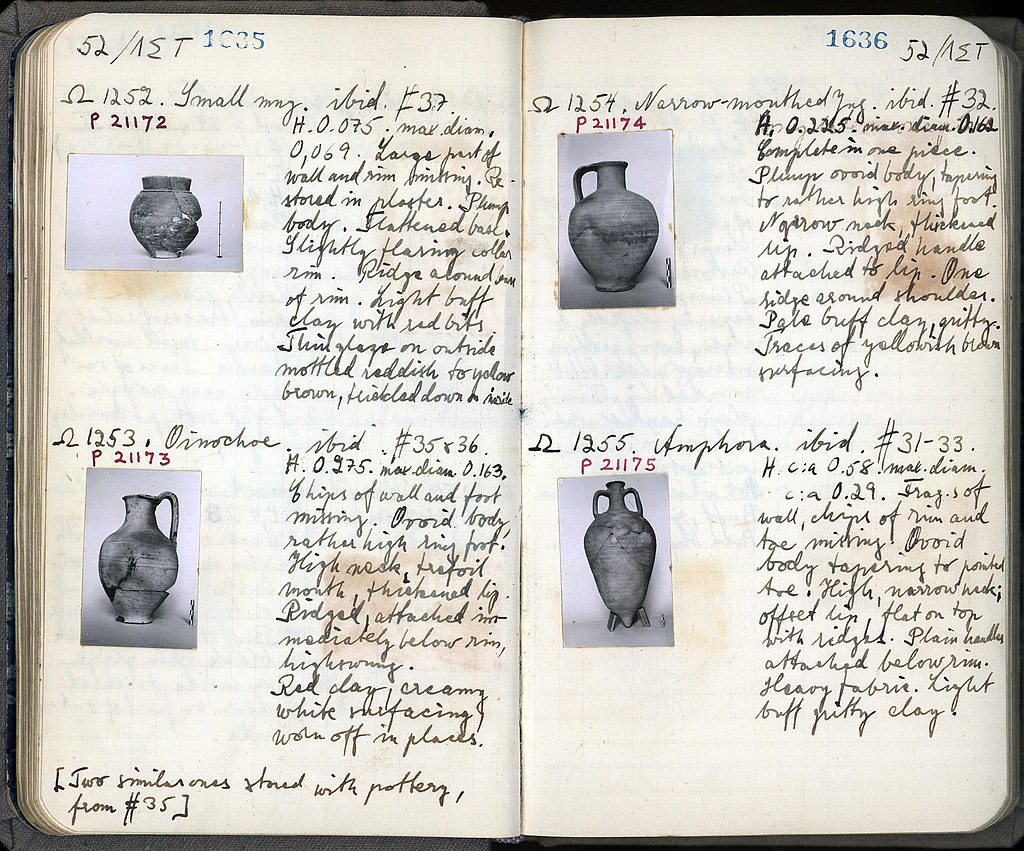 52/ΛΣΤ 1635
Ω 1252. Small mug. ibid. #37.
P 21172
H. 0.075. max. diam.
0,069. Large part of
wall and rim missing. Re-
stored in plaster. Plump
body. Flattened base.
Slightly flaring collar
rim. Ridge around base
of rim. Light buff
clay with red bits
Thin glaze on outside
mottled reddish to yellow
brown, trickled down inside
Ω 1253. Oinochoe. ibid. #35 & 36.
P 21173
H. 0.275. max. diam. 0.163.
Chips of wall and foot
missing. Ovoid body,
rather high ring foot.
High neck, trefoil
mouth, thickened lip.
Ridged, attached im-
mediately below rim,
highswung.
Red clay, creamy
white surfacing,
worn off in places.
[Two similar ones stored with pottery,
from #35]
1636 52/ΛΣΤ
Ω 1254. Narrow-mouthed Jug. ibid. #32.
P 21174
H. 0.225. max. diam. 0.162
Complete in one piece.
Plump ovoid body, tapering
to rather high ring foot.
Narrow neck, thickened
lip. Ridged handle
attached to lip. One
ridge around shoulder.
Pale buff clay, gritty.
Traces of yellowish brown
surfacing.
Ω 1255. Amphora. ibid. #31-33.
P 21175
H. c:a 0.58. max. diam.
c:a 0.29. Frag.s of
wall, chips of rim and
toe missing. Ovoid
body tapering to pointed
toe. High, narrow neck;
offset lip, flat on top
with ridges. Plain handles
attached below rim.
Heavy fabric. Light
buff gritty clay.